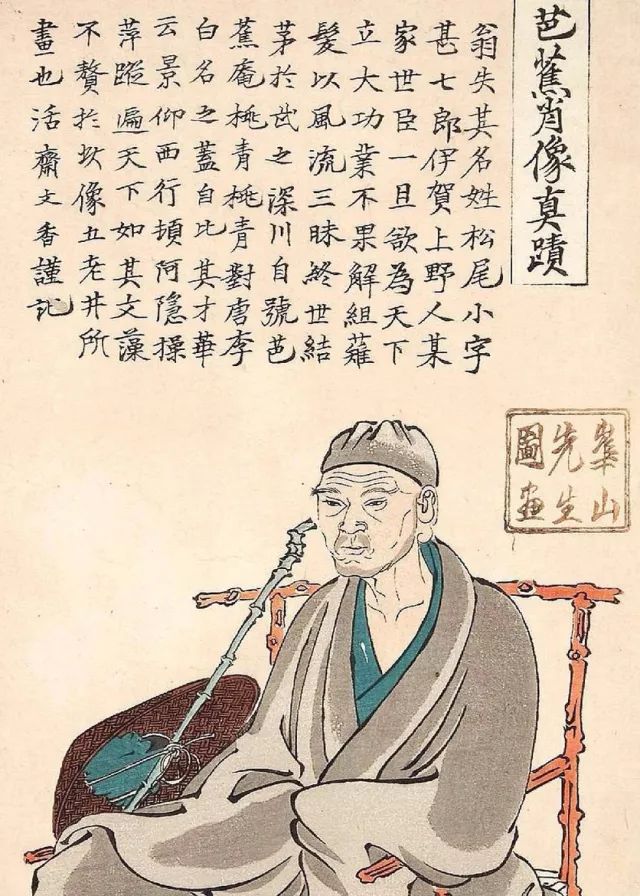 芭蕉肖像真蹟
翁失其名姓松尾小字
甚七郎伊賀上野人某
家世臣一旦欲為天下
立大功業不果解組薙
髮以風流三昧終世結
茅於武之深川自號芭
蕉庵桃青桃青對唐李
白名之蓋自比其才華
云景仰西行頓阿隱操
萍蹤遍天下如其文藻
不贅於玆像五老井所
畫也活齋文香謹記
崋山
先生
圖画